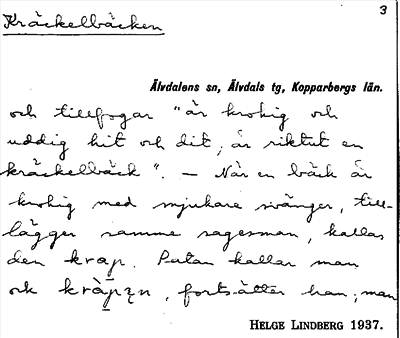 3
Kräckelbäcken
Älvdalens sn, Älvdals tg, Kopparbergs län.
och tillfogar "är krokig och
uddig hit och dit, är riktut en
kräckelbäck". — När en bäck är
krokig med mjukare svänger, till-
lägger samme sagesman, kallas
den krap. Putan kallar man
ock kràpꞩn, fortsätter han; man
HELGE LINDBERG 1937.